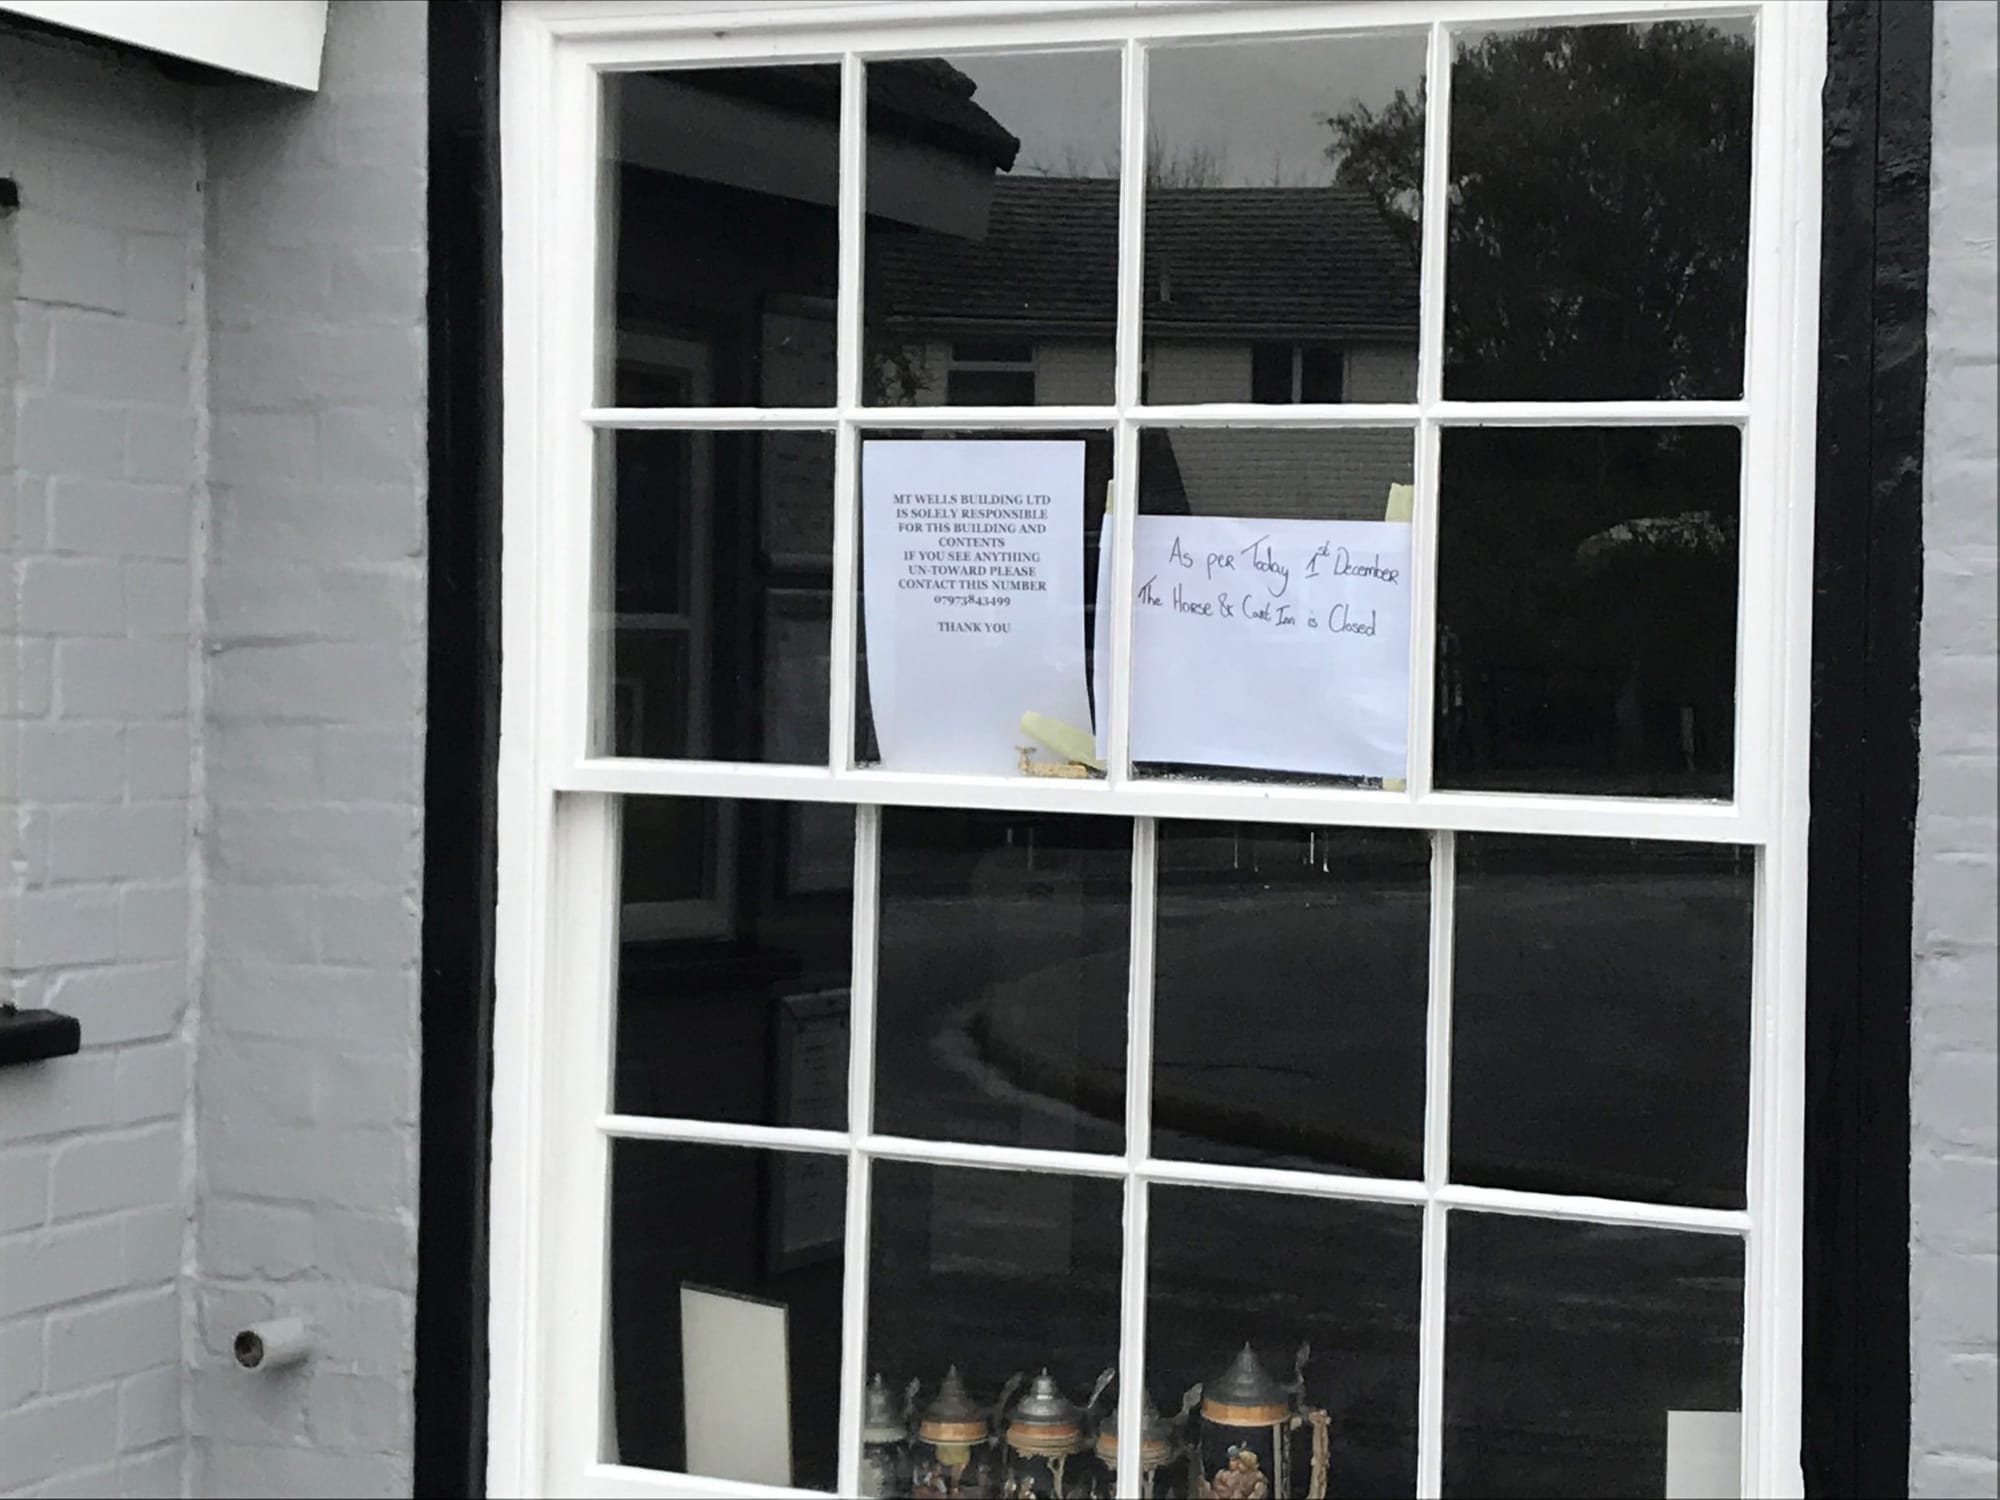 MT WELLS BUILDING LTD
IS SOLELY RESPONSIBLE
FOR THS BUILDING AND
CONTENTS
IF YOU SEE ANYTHING
UN-TOWARD PLEASE
CONTACT THIS NUMBER
07973843499
THANK YOU
As per Today 1st December
The Horse & Cart Inn is Closed